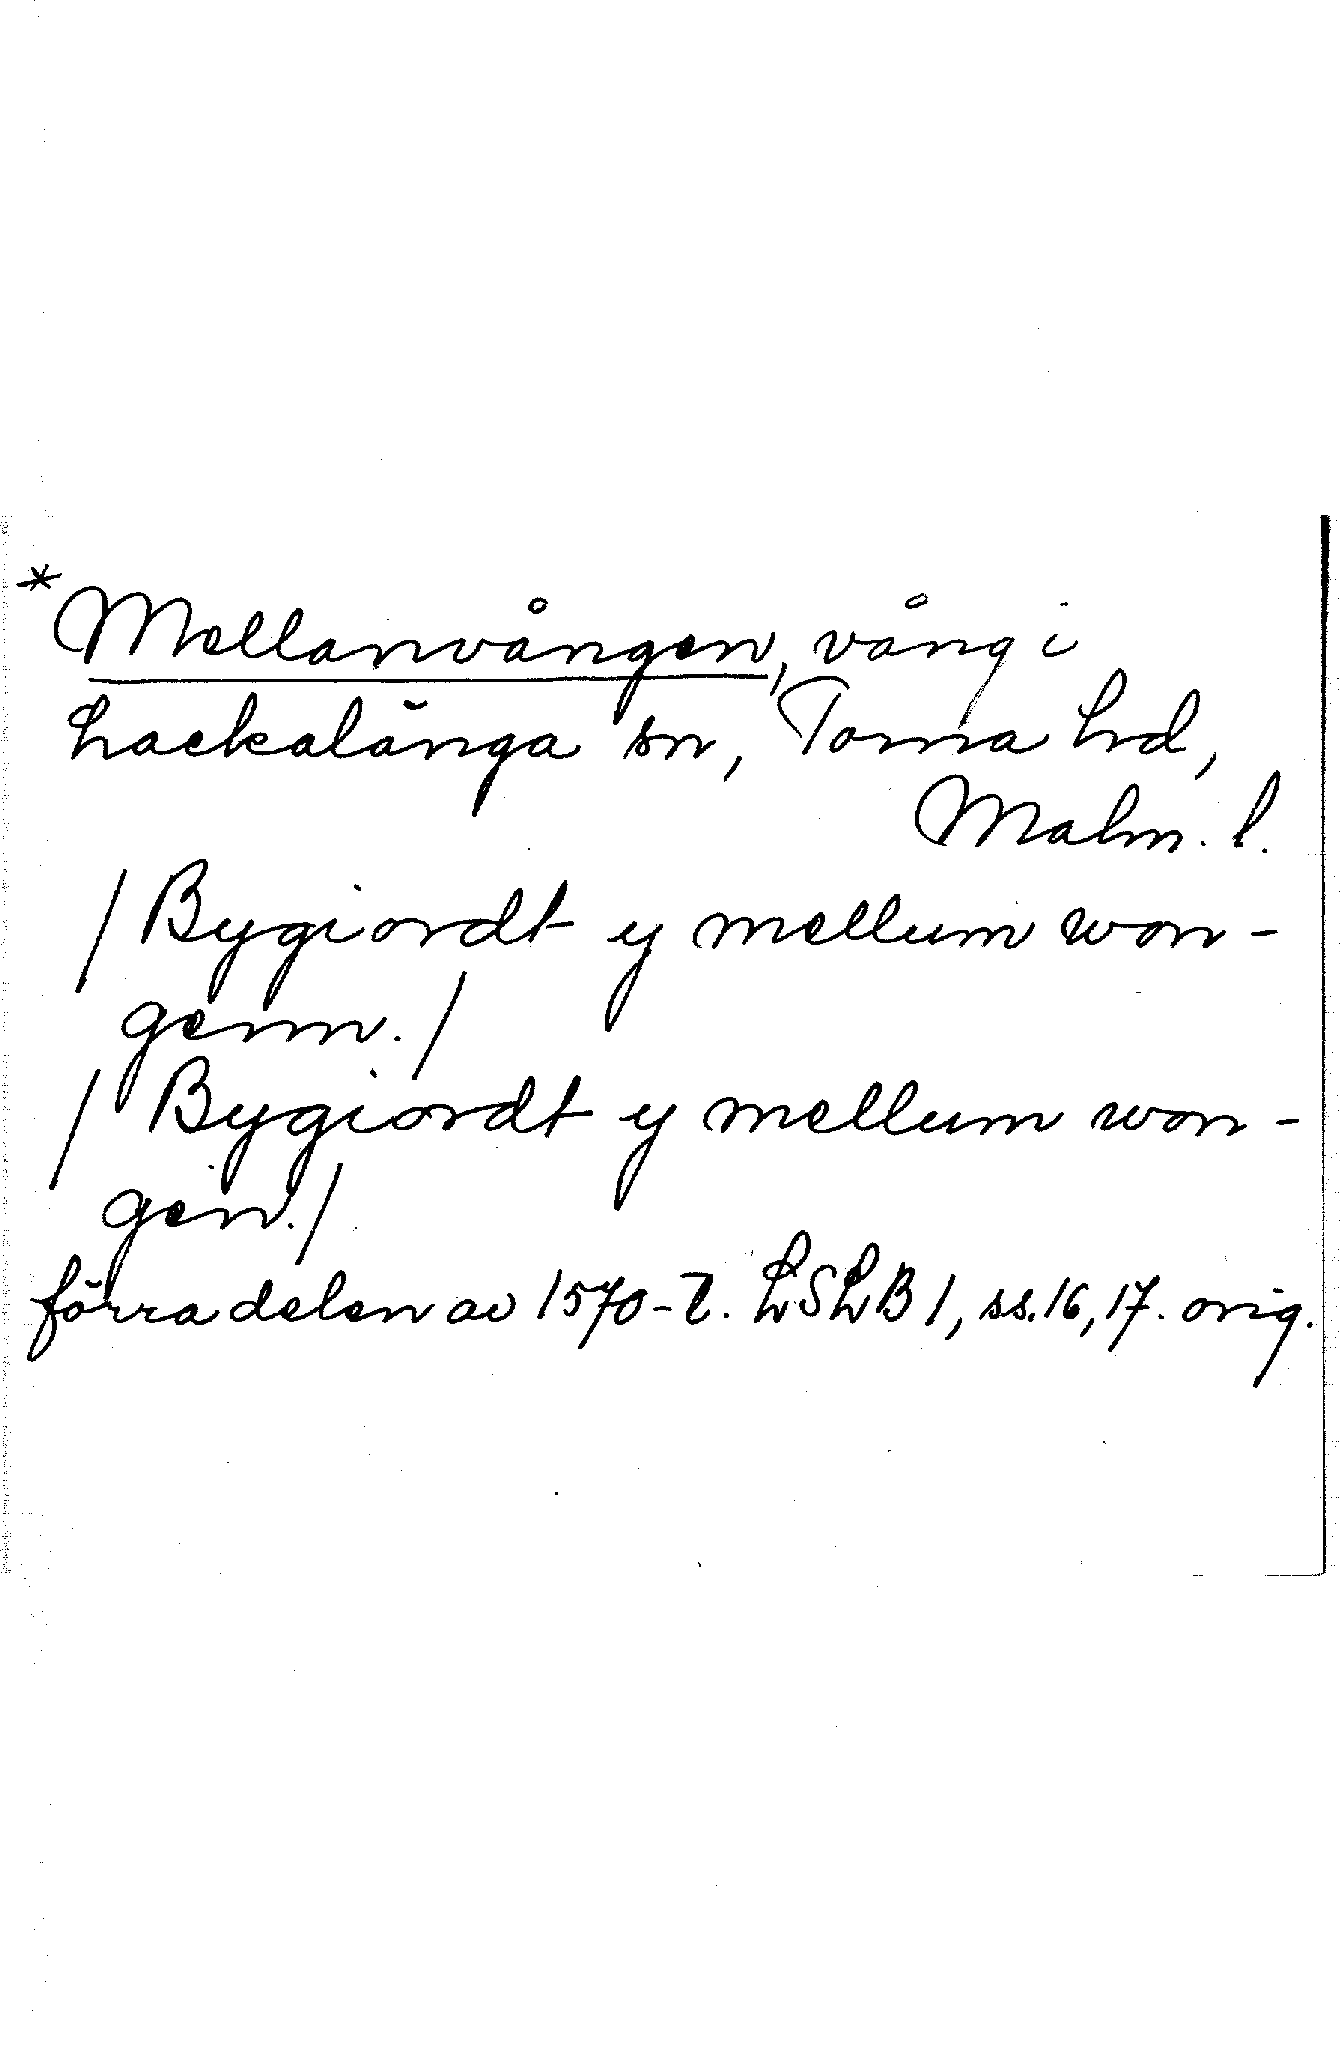 *Mellanvången, vång i
Hackalänga sn, Torna hd,
Malm. l.
/ Bygiordt y mellum won-
genn. /
/ Bygiordt y mellum won-
gen. /
förra delen av 1570-t. LSLB 1, ss. 16, 17. orig.